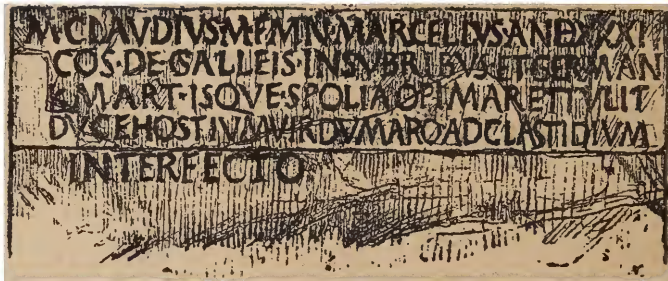 M·CLAVDIVS·M·F·M·N·MARCELLVS·AN·DXXXI
COS·DE·GALLEIS·INSVBRIBVS·ET·GERMAN
K·MART·ISQVE·SPOLIA·OPIMA·RETTVLIT
DVCE·HOSTIVM·VIRDVMARO·AD·CLASTIDIVM
INTERFECTO